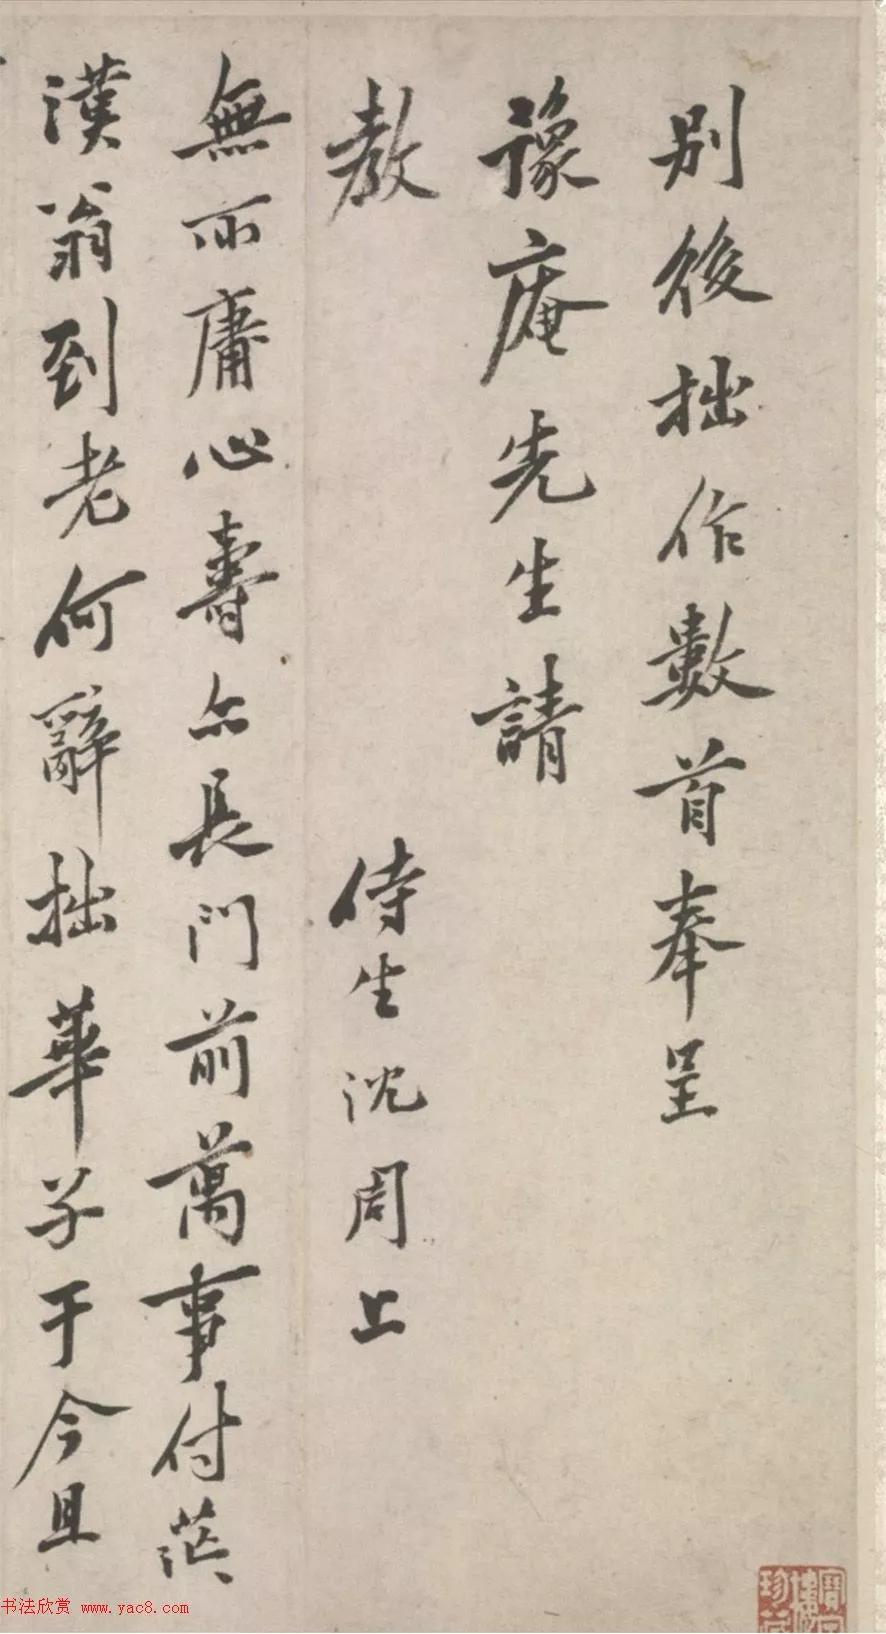 別後拙作數首奉呈
豫庵先生請
教
侍生沈周上
無所庸心壽亦長門前萬事付茫
漢翁到老何辭拙華子于今且
书法欣赏 www.yac8.com